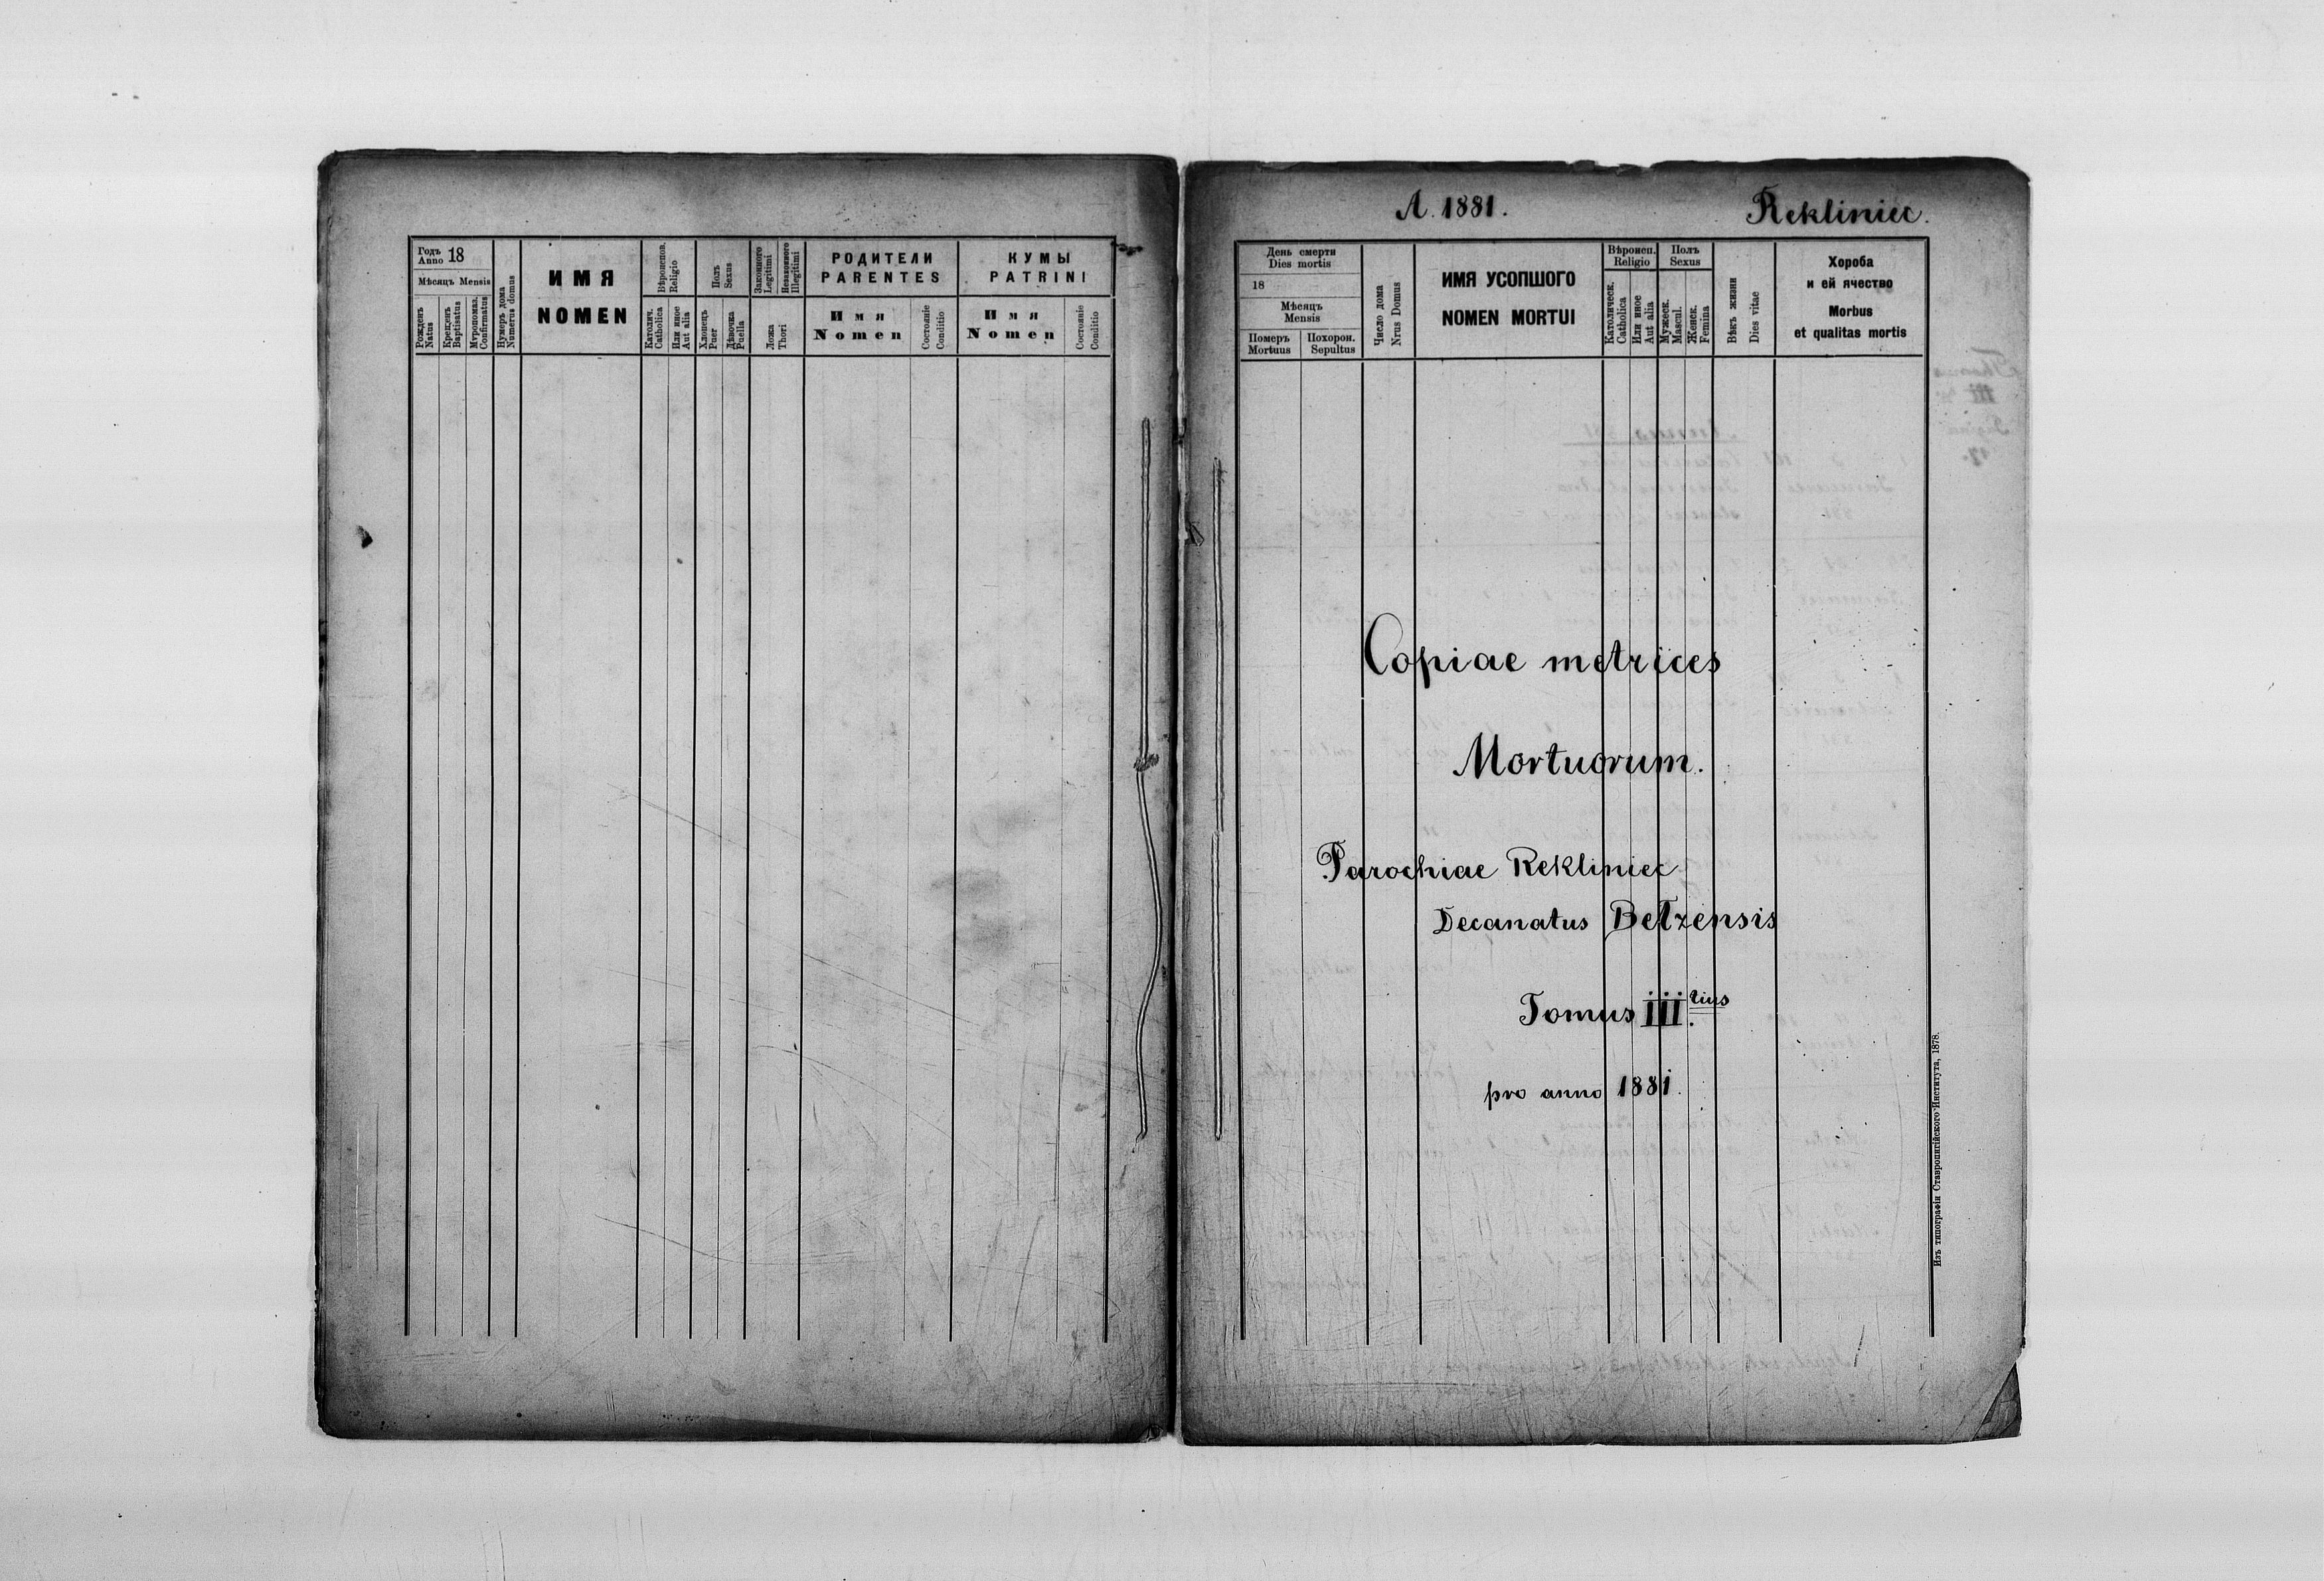 Годъ
Anno 18
Мѣсяцъ Mensis
Рожденъ
Natus
Крещенъ
Baptisatus
Мѵропомаз.
Confirmatus
Нумеръ дома
Numerus domus
ИМЯ
NOMEN
Вѣроиспов.
Religio
Католич.
Catholica
Или иное
Aut alia
Полъ
Sexus
Хлопецъ
Puer
Дѣвочка
Puella
Законного
Legitimi
Незаконного
Illegitimi
Ложа
Thori
РОДИТЕЛИ
PARENTES
Имя
Nomen
Состояніе
Conditio
КУМЫ
PATRINI
Имя
Nomen
Состояніе
Conditio
A. 1881.
Rekliniec.
День смерти
Dies mortis
18
Мѣсяцъ
Mensis
Померъ
Mortuus
Похорон.
Sepultus
Число дома
Nrus Domus
ИМЯ УСОПШОГО
NOMEN MORTUI
Вѣроисп.
Religio
Католическ.
Catholica
Или иное
Aut alia
Полъ
Sexus
Мужеск.
Mascul.
Женск.
Femina
Вѣкъ жизни
Dies vitae
Хороба
и ей ячество
Morbus
et qualitas mortis
Copiae metrices
Mortuorum.
Parochiae Rekliniec
Decanatus Betzensis
Tomus III tius.
pro anno 1881.
Изъ типографіи Ставропигійского Института, 1878.